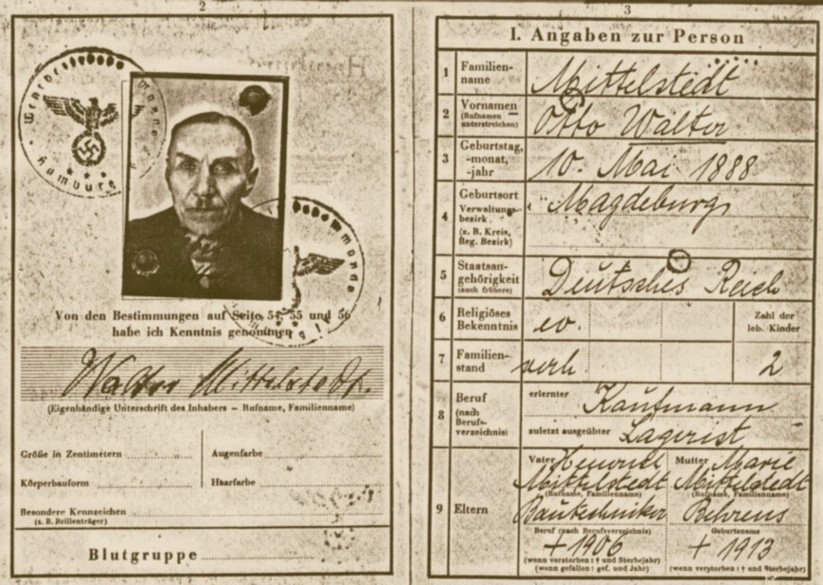 2
Hamburg
Von den Bestimmungen auf Seite 54, 55 und 56
habe ich Kenntnis genommen
Walter Mittelstedt.
(Eigenhändige Unterschrift des Inhabers – Rufname, Familienname)
Größe in Zentimetern
Augenfarbe
Körperbauform
Haarfarbe
Besondere Kennzeichen
(z. B. Brillenträger)
Blutgruppe
3
I. Angaben zur Person
1 Familien-
name
Mittelstedt
2 Vornamen
(Rufnamen
unterstreichen)
Otto Walter
3 Geburtstag,
-monat,
-jahr
10. Mai 1888
4 Geburtsort
Verwaltungs-
bezirk
(z. B. Kreis,
Reg. Bezirk)
Magdeburg
5 Staatsan-
gehörigkeit
(auch frühere)
Deutsches Reich
6 Religiöses
Bekenntnis
ev.
Zahl der
leb. Kinder
7 Familien-
stand
verh.
2
8 Beruf
(nach
Berufs-
verzeichnis)
erlernter Kaufmann
zuletzt ausgeübter
Lagerist
9 Eltern
Vater Heinrich
Mittelstedt
(Rufname, Familienname)
Bautechniker
Beruf (nach Berufsverzeichnis)
+ 1906
(wenn verstorben: † und Sterbejahr)
(wenn gefallen: gef. und Jahr)
Mutter Marie
Mittelstedt
(Rufname, Familienname)
Behrens
Geburtsname
+ 1913
(wenn verstorben: † und Sterbejahr)